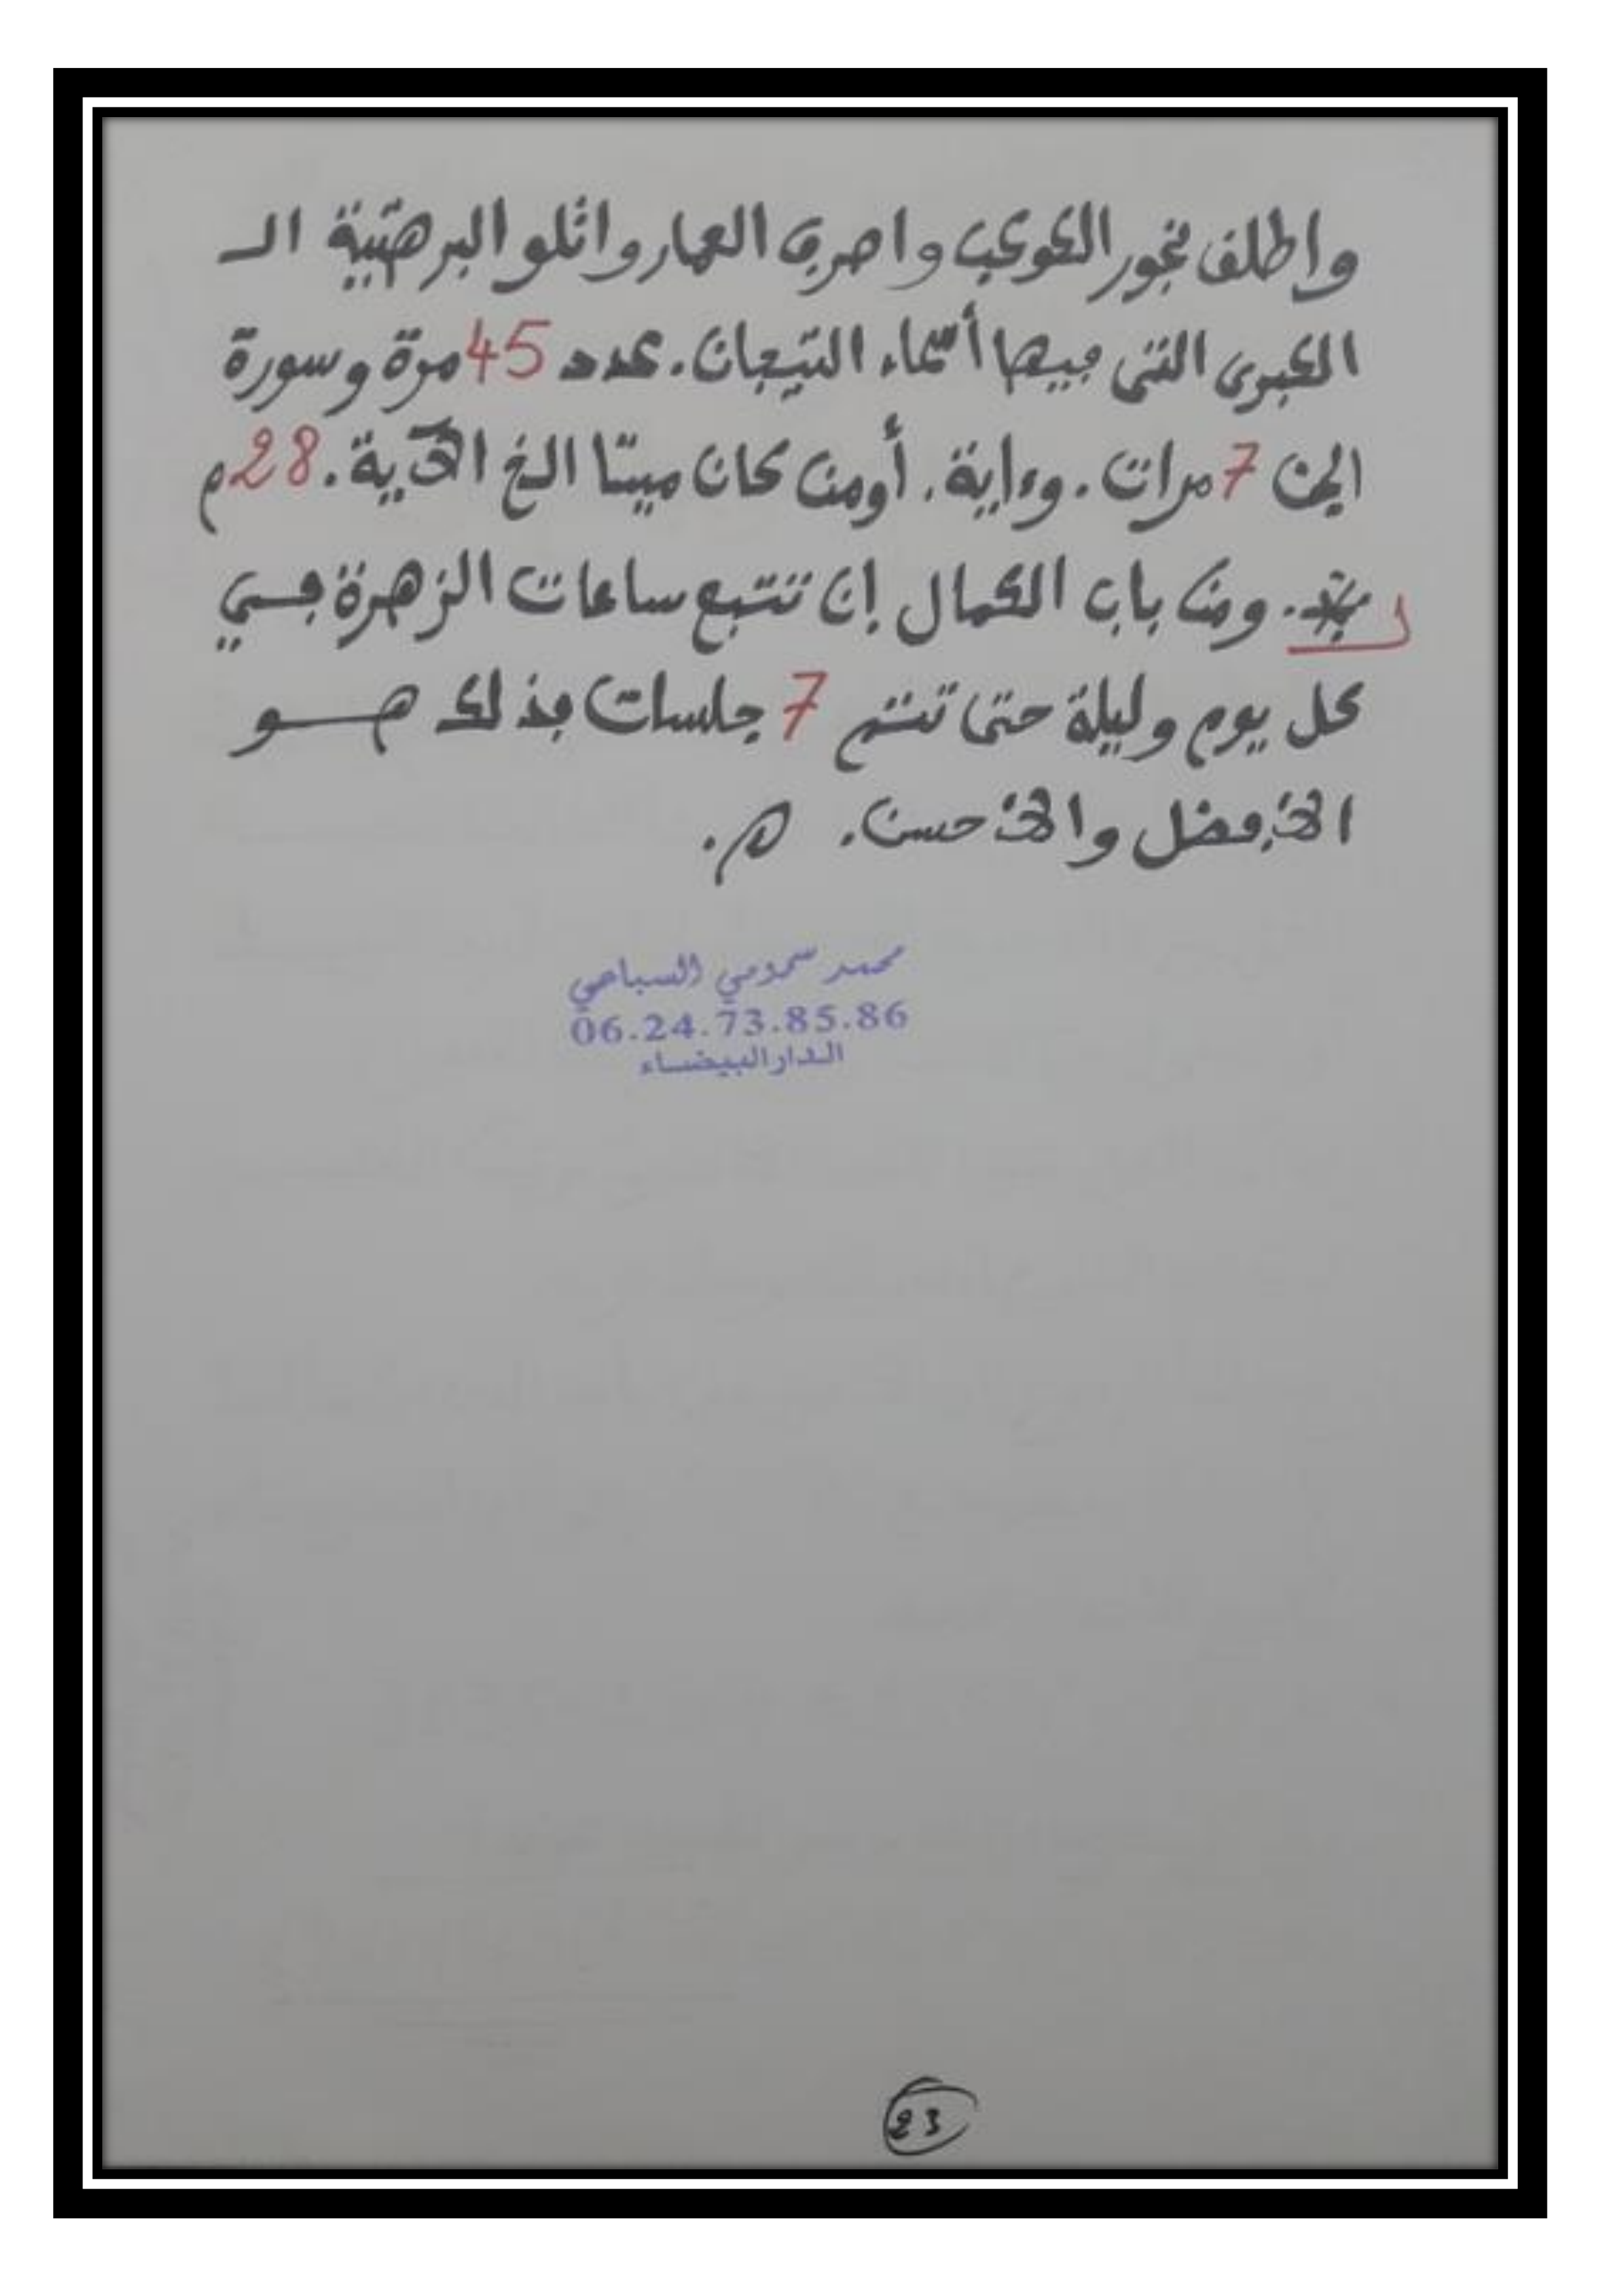 واطلق بخور الكوكب واصرف العمار واتلو البرهتية الـ
الكبرى التي فيها أسماء التيجان. عدد 45 مرة وسورة
الجن 7 مرات. وءاية. أومن كان ميتا الخ الآية. 28 م
ومن باب الكمال إن تتبع ساعات الزهرة في
كل يوم وليلة حتى تتم 7 جلسات فذلك هو
الأفضل والأحسن. ه.
محمد سمومي السباعي
06.24.73.85.86
الدار البيضاء
23